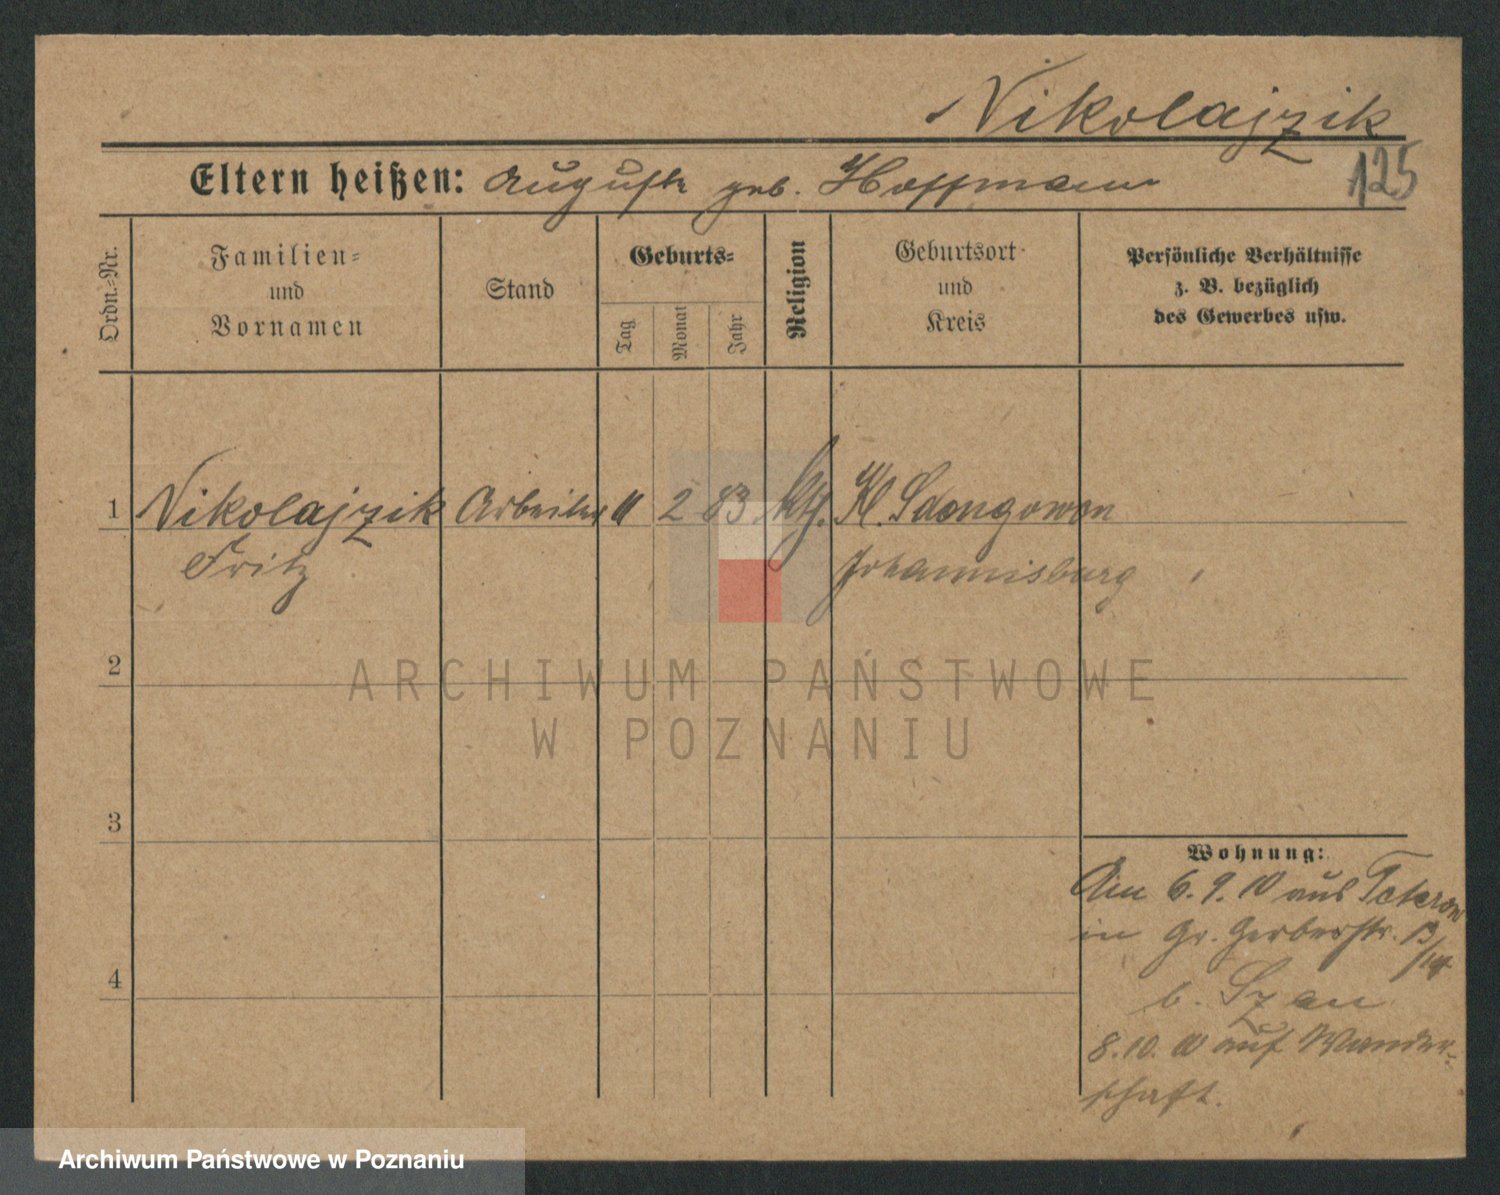 Nikolajzik
125
Eltern heißen: Auguste geb. Hoffmann
Ordn.=Nr.
Familien=
und
Vornamen
Stand
Geburts=
Tag
Monat
Jahr
Religion
Geburtsort
und
Kreis
Persönliche Verhältnisse
z. B. bezüglich
des Gewerbes usw.
1 Nikolajzik Arbeiter 11 2 83 Kl.
Fritz Johannisburg
2
ARCHIWUM PAŃSTWOWE
W POZNANIU
3
4
Wohnung:
Am 6. 9. 10 aus
in Gr. Gerberstr. 13
/14
b. Szan
8. 10. 10 auf Wander-
schaft.
Archiwum Państwowe w Poznaniu